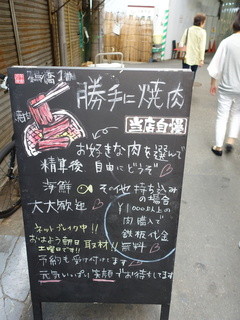 勝手に焼肉
当店自慢
お好きな肉を選んで
精算後 自由にどうぞ
海鮮 その他 持ち込み
大大歓迎 の場合
¥1,000以上の
肉購入で
鉄板代金
無料
ネットブレイク中!!
おはよう朝日 取材!!
土曜日です!!
予約も受け付けてます
元気いっぱいに笑顔でお待ちしてます